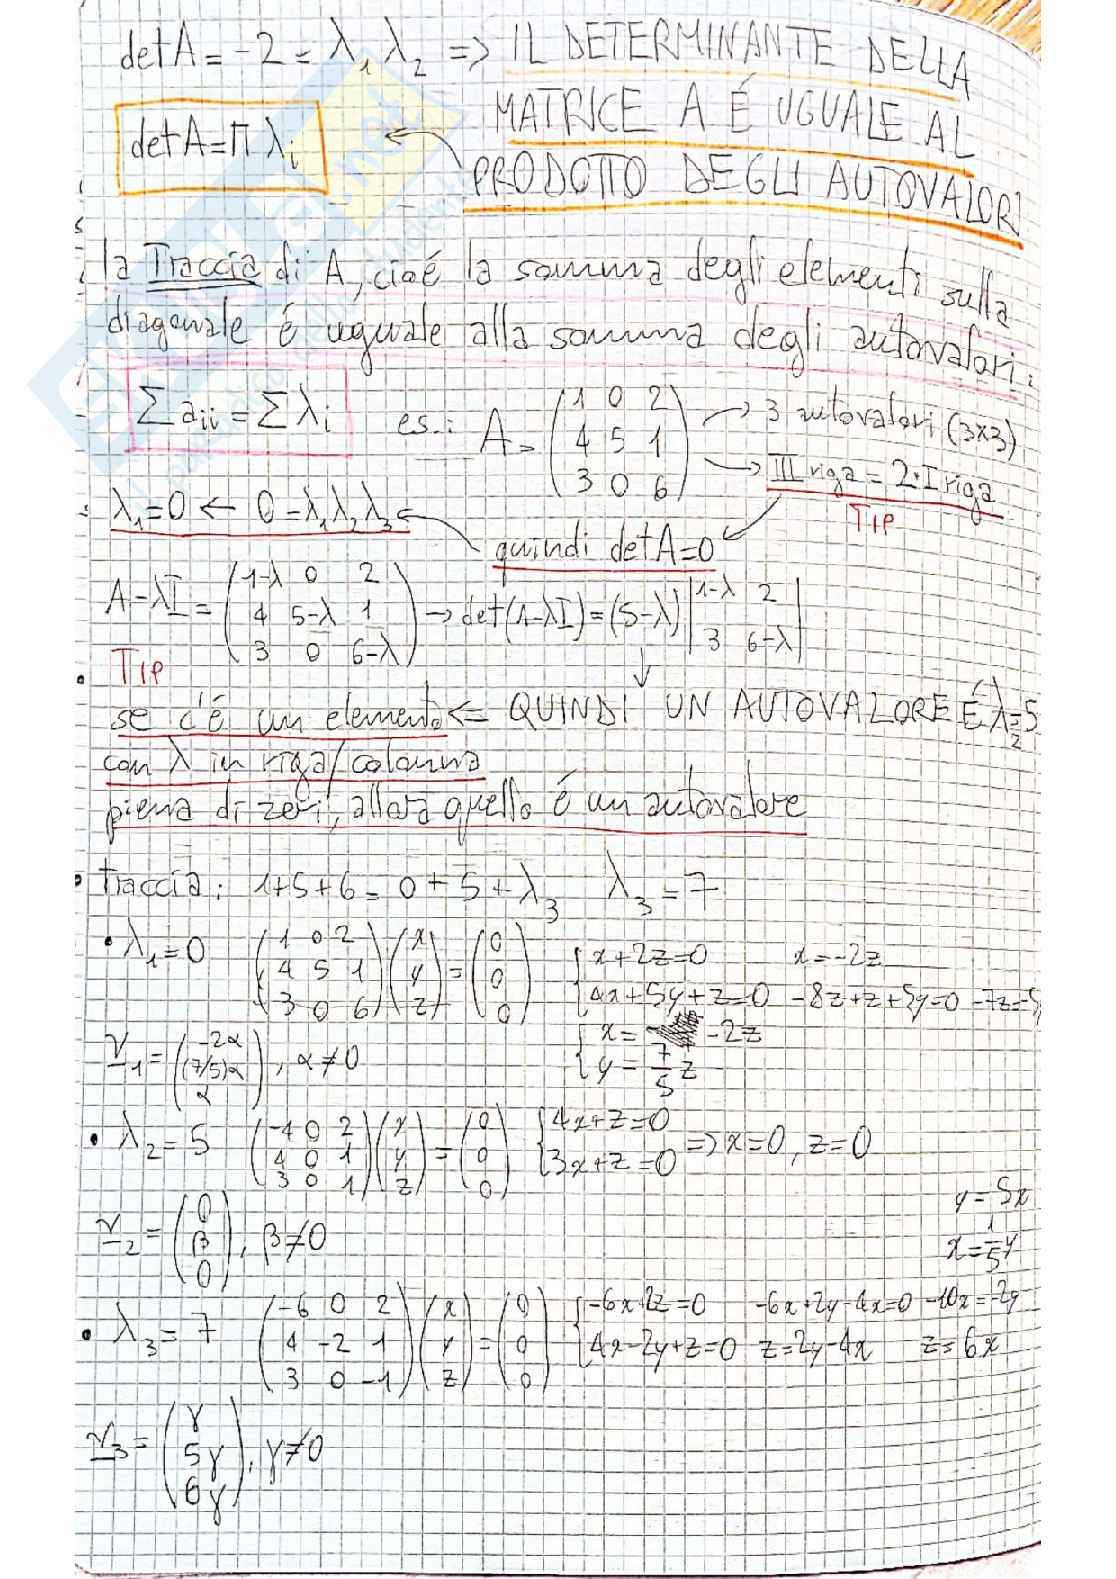 detA = -2 = λ₁ λ₂ => IL DETERMINANTE DELLA
MATRICE A É UGUALE AL
detA = Π λᵢ
PRODOTTO DEGLI AUTOVALORI
la Traccia di A, cioé la somma degli elementi sulla
diagonale é uguale alla somma degli autovalori:
Σ aᵢᵢ = Σ λᵢ es.: A = (1 0 2
4 5 1
3 0 6)
→ 3 autovalori (3x3)
→ III riga = 2·I riga
TIP
λ₁=0 ← 0=λ₁λ₂λ₃
quindi detA=0
A-λI = (1-λ 0 2
4 5-λ 1
3 0 6-λ)
→ det(1-λI) = (5-λ) |1-λ 2
3 6-λ|
TIP
se c'é un elemento <= QUINDI UN AUTOVALORE É λ₂=5
con λ in riga/colonna
piena di zeri, allora quello é un autovalore
• traccia: 1+5+6 = 0+5+λ₃ λ₃=7
• λ₁=0 (1 0 2
4 5 1
3 0 6) (x
y
z) = (0
0
0)
{x+2z=0 x=-2z
4x+5y+z=0 -8z+z+5y=0
{x= -2z
y= 7/5 z
v₁ = (-2α
(7/5)α
α), α≠0
• λ₂=5 (-4 0 2
4 0 1
3 0 1) (x
y
z) = (0
0
0)
{4x+z=0
3x+z=0 => x=0, z=0
v₂ = (0
β
0), β≠0
y=5x
x=1/5y
• λ₃=7 (-6 0 2
4 -2 1
3 0 -1) (x
y
z) = (0
0
0)
{-6x+2z=0 -6x+2y-4x=0 -10x=-2y
4x-2y+z=0 z=2y-4x z=6x
v₃ = (γ
5γ
6γ), γ≠0